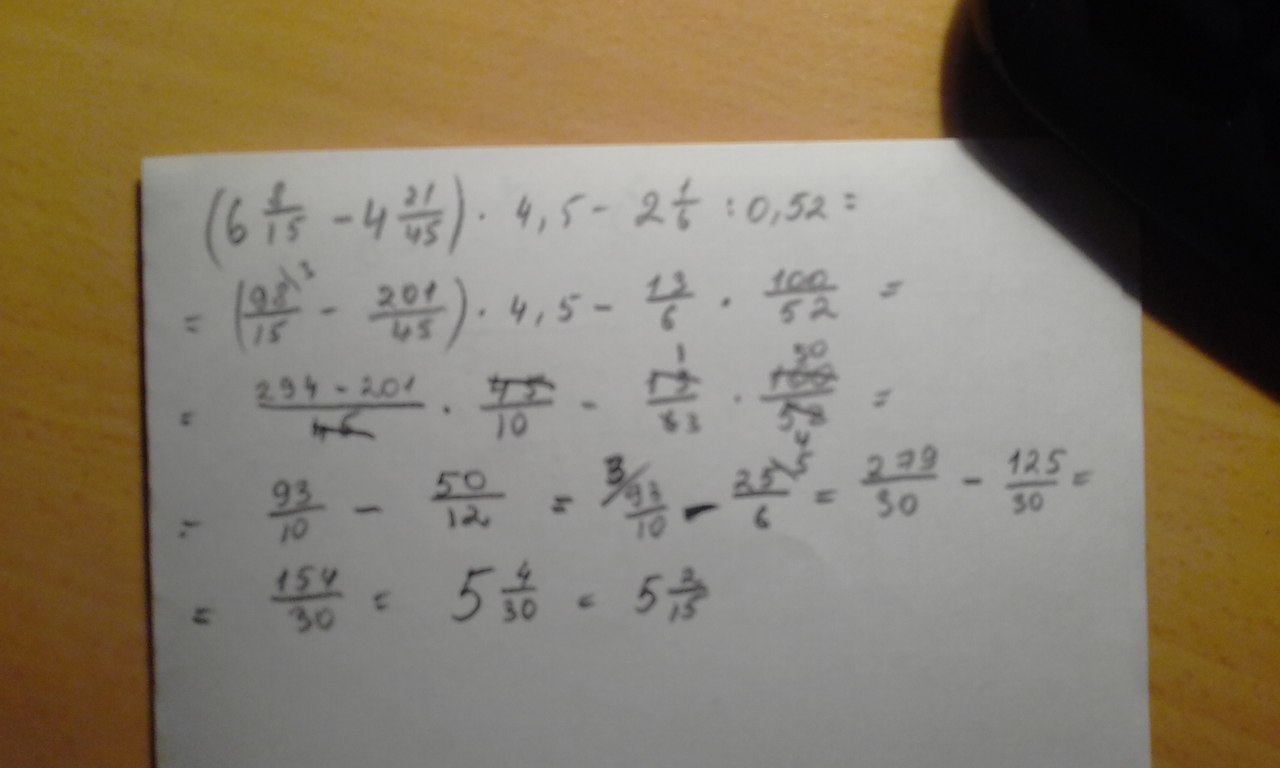 (6 8/15 - 4 21/45) · 4,5 - 2 1/6 : 0,52 =
= (98/15 \3 - 201/45) · 4,5 - 13/6 · 100/52 =
= 294 - 201/45 · 45/10 - 13 1/6 3 · 100 50/52 4 =
= 93/10 - 50/12 = 3/ 93/10 - 25/6 \5 = 279/30 - 125/30 =
= 154/30 = 5 4/30 = 5 2/15